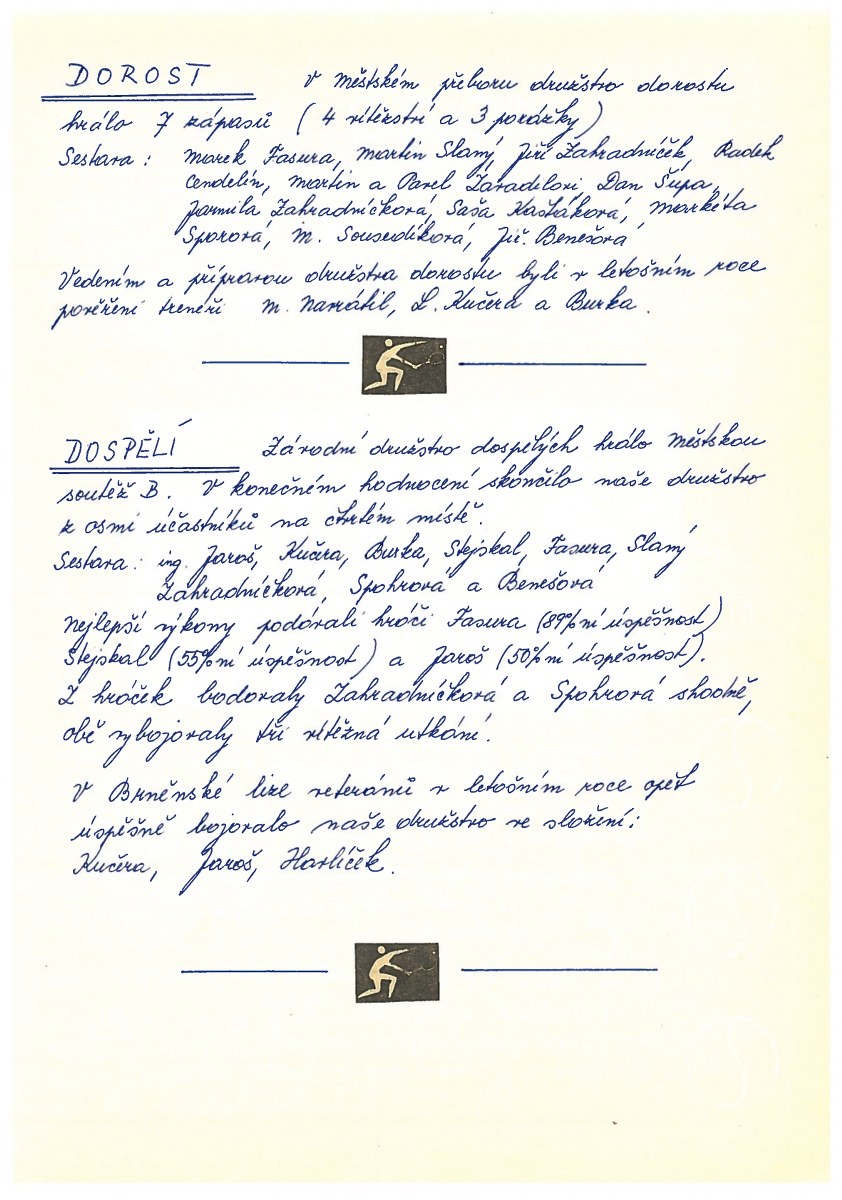 DOROST V Městském přeboru družstvo dorostu
hrálo 7 zápasů (4 vítězství a 3 porážky)
Sestava: Marek Fasura, Martin Slaný, Jiří Zahradníček, Radek
Cendelín, Martin a Pavel Zavadilovi, Dan Šupa,
Jarmila Zahradníčková, Saša Kaštáková, Markéta
Sporová, M. Sousedíková, Jiř. Benešová
Vedením a přípravou družstva dorostu byli v letošním roce
pověřeni trenéři M. Navrátil, L. Kučera a Burka.
DOSPĚLÍ Závodní družstvo dospělých hrálo Městskou
soutěž B. V konečném hodnocení skončilo naše družstvo
z osmi účastníků na čtvrtém místě.
Sestava: ing. Jaroš, Kučera, Burka, Stejskal, Fasura, Slaný
Zahradníčková, Spohrová a Benešová
Nejlepší výkony podávali hráči Fasura (89%ní úspěšnost)
Stejskal (55%ní úspěšnost) a Jaroš (50%ní úspěšnost).
Z hráček bodovaly Zahradníčková a Spohrová shodně,
obě vybojovaly tři vítězná utkání.
V Brněnské lize veteránů v letošním roce opět
úspěšně bojovalo naše družstvo ve složení:
Kučera, Jaroš, Havlíček.